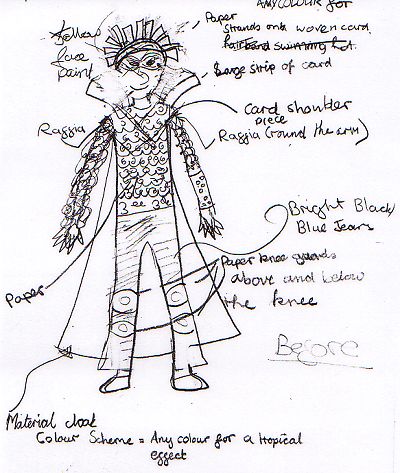 ANY COLOUR for
Yellow
face
paint
Paper
Strands onto woven card
hairband swimming hat.
Large strip of card
Card shoulder
piece
Raffia
Raffia (round the arm)
Bright Black/
Blue Jeans
Paper knee guards
above and below
the knee
Paper
Before
Material cloak
Colour Scheme = Any colour for a tropical
effect